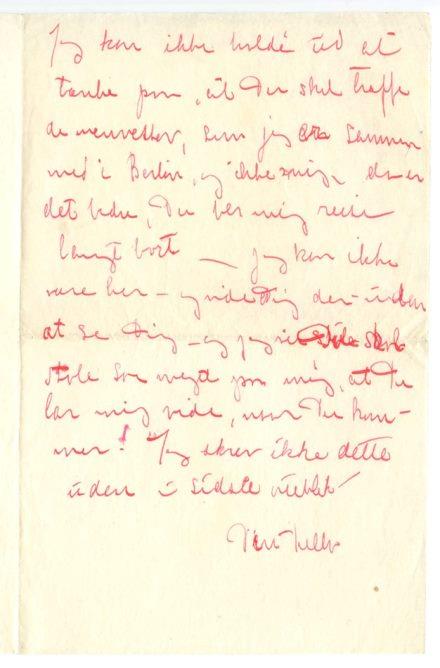 Jeg kan ikke holde ud at
tænke paa, at Du skal træffe
de mennesker, som jeg er sammen
med i Berlin, og ikke mig, da er
det bedre, Du ber mig reise
langt bort — jeg kan ikke
være her – og vide Dig der – uden
at se Dig – og jeg vil
stole saa meget paa mig, at Du
lar mig vide, naar Du kom-
mer! Jeg skrev ikke dette
uden i sidste
Din